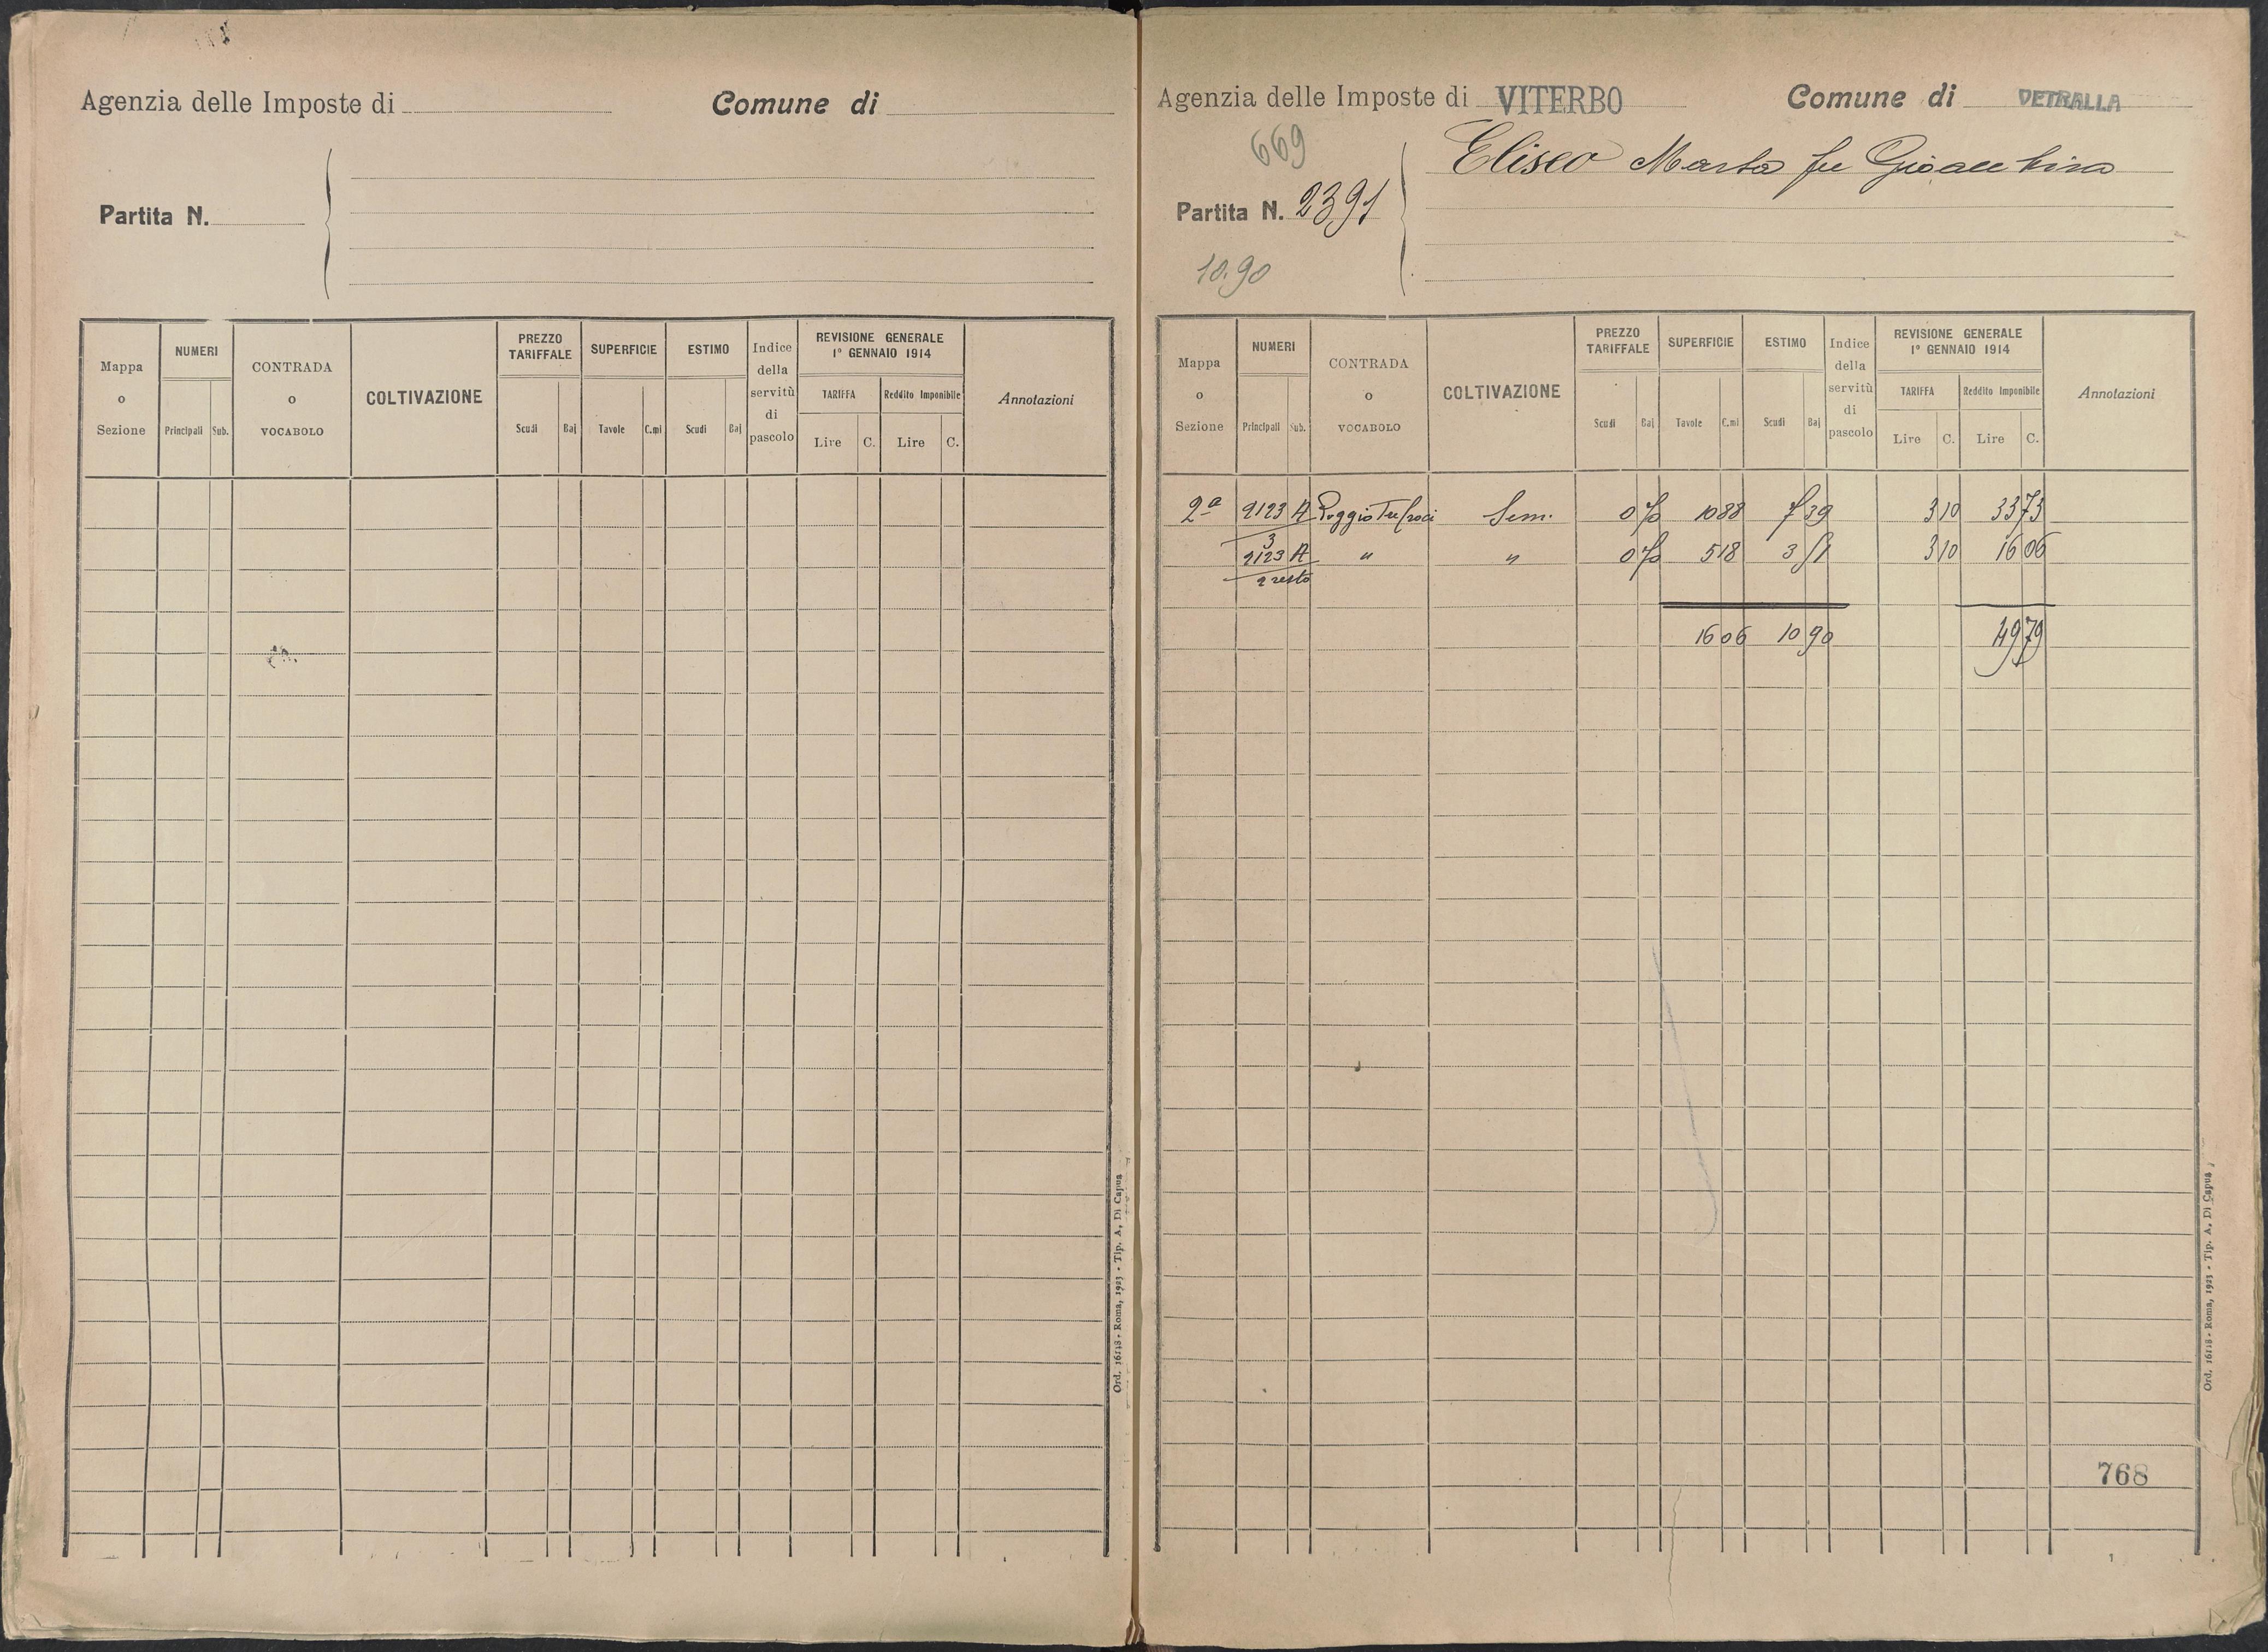 Agenzia delle Imposte di
Comune di
Partita N.
Mappa o Sezione
NUMERI
Principali Sub.
CONTRADA o VOCABOLO
COLTIVAZIONE
PREZZO TARIFFALE
Scudi Baj
SUPERFICIE
Tavole C.mi
ESTIMO
Scudi Baj
Indice della servitù di pascolo
REVISIONE GENERALE
1° GENNAIO 1914
TARIFFA
Lire C.
Reddito Imponibile
Lire C.
Annotazioni
Ord. 16118 - Roma, 1923 - Tip. A. Di Capua
Agenzia delle Imposte di VITERBO
Comune di VETRALLA
669
Eliseo Marta fu Gioacchino
Partita N. 2391
10.90
Mappa o Sezione
NUMERI
Principali Sub.
CONTRADA o VOCABOLO
COLTIVAZIONE
PREZZO TARIFFALE
Scudi Baj
SUPERFICIE
Tavole C.mi
ESTIMO
Scudi Baj
Indice della servitù di pascolo
REVISIONE GENERALE
1° GENNAIO 1914
TARIFFA
Lire C.
Reddito Imponibile
Lire C.
Annotazioni
2a 2123 A Poggio Sem. 10 88 7 39 3 10 33 73
3
2123 A " " 5 18 3 51 3 10 16 06
2 resto
16 06 10 90 49 79
768
Ord. 16118 - Roma, 1923 - Tip. A. Di Capua